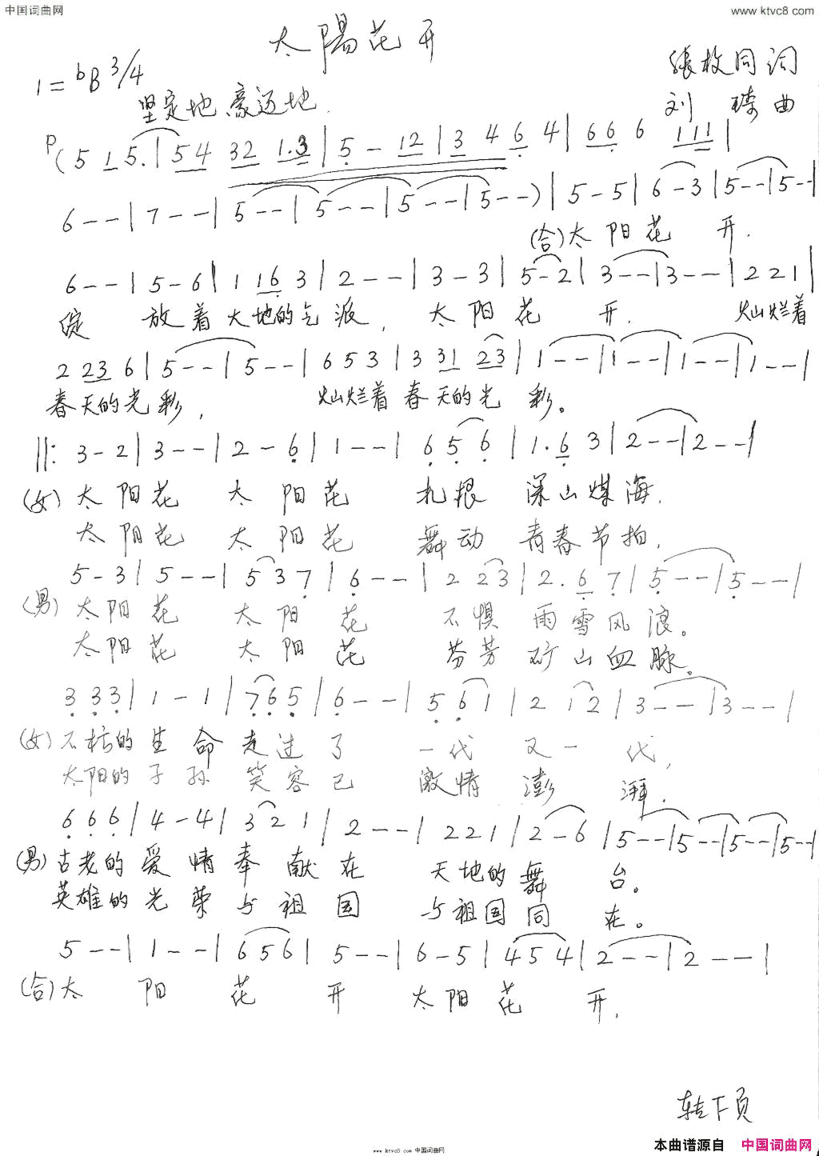 中国词曲网
www.ktvc8.com
太陽花开
1=bB 3/4
张枚同词
坚定地、豪迈地.
刘 曲
P(5 1 5.|54 32 1.3|5 - 12|3 4 6 4|66 6 111|
6--|7--|5--|5--|5--|5--)|5-5|6-3|5--|5--|
(合)太阳花 开.
6--|5-6|1 16 3|2--|3-3|5-2|3--|3--|2 2 1|
绽 放着大地的气派, 太阳花 开. 灿烂着
2 23 6|5--|5--|6 5 3|3 31 23|1--|1--|1--|1--|
春天的光彩, 灿烂着春天的光 彩。
||: 3-2|3--|2-6|1--|6 5 6|1.6 3|2--|2--|
(女)太阳花 太阳花 扎根 深山煤海.
太阳花 太阳花 舞动 青春节拍,
5-3|5--|5 3 7|6--|2 23|2.6 7|5--|5--|
(男)太阳花 太阳花 不惧 雨雪风浪。
太阳花 太阳花 芬芳 矿山血脉。
3 3 3|1-1|7 6 5|6--|5 6 1|2 12|3--|3--|
(女)不朽的生命走过了 一代 又一 代,
太阳的子孙笑容已 激情 澎 湃.
6 6 6|4-4|3 2 1|2--|2 2 1|2-6|5--|5--|5--|5--|
(男)古老的爱情奉献在 天地的舞 台。
英雄的光荣与祖国 与祖国同 在。
5--|1--|6 5 6|5--|6-5|4 5 4|2--|2--|
(合)太 阳 花 开 太阳花 开.
转下页
本曲谱源自 中国词曲网
www.ktvc8.com 中国词曲网